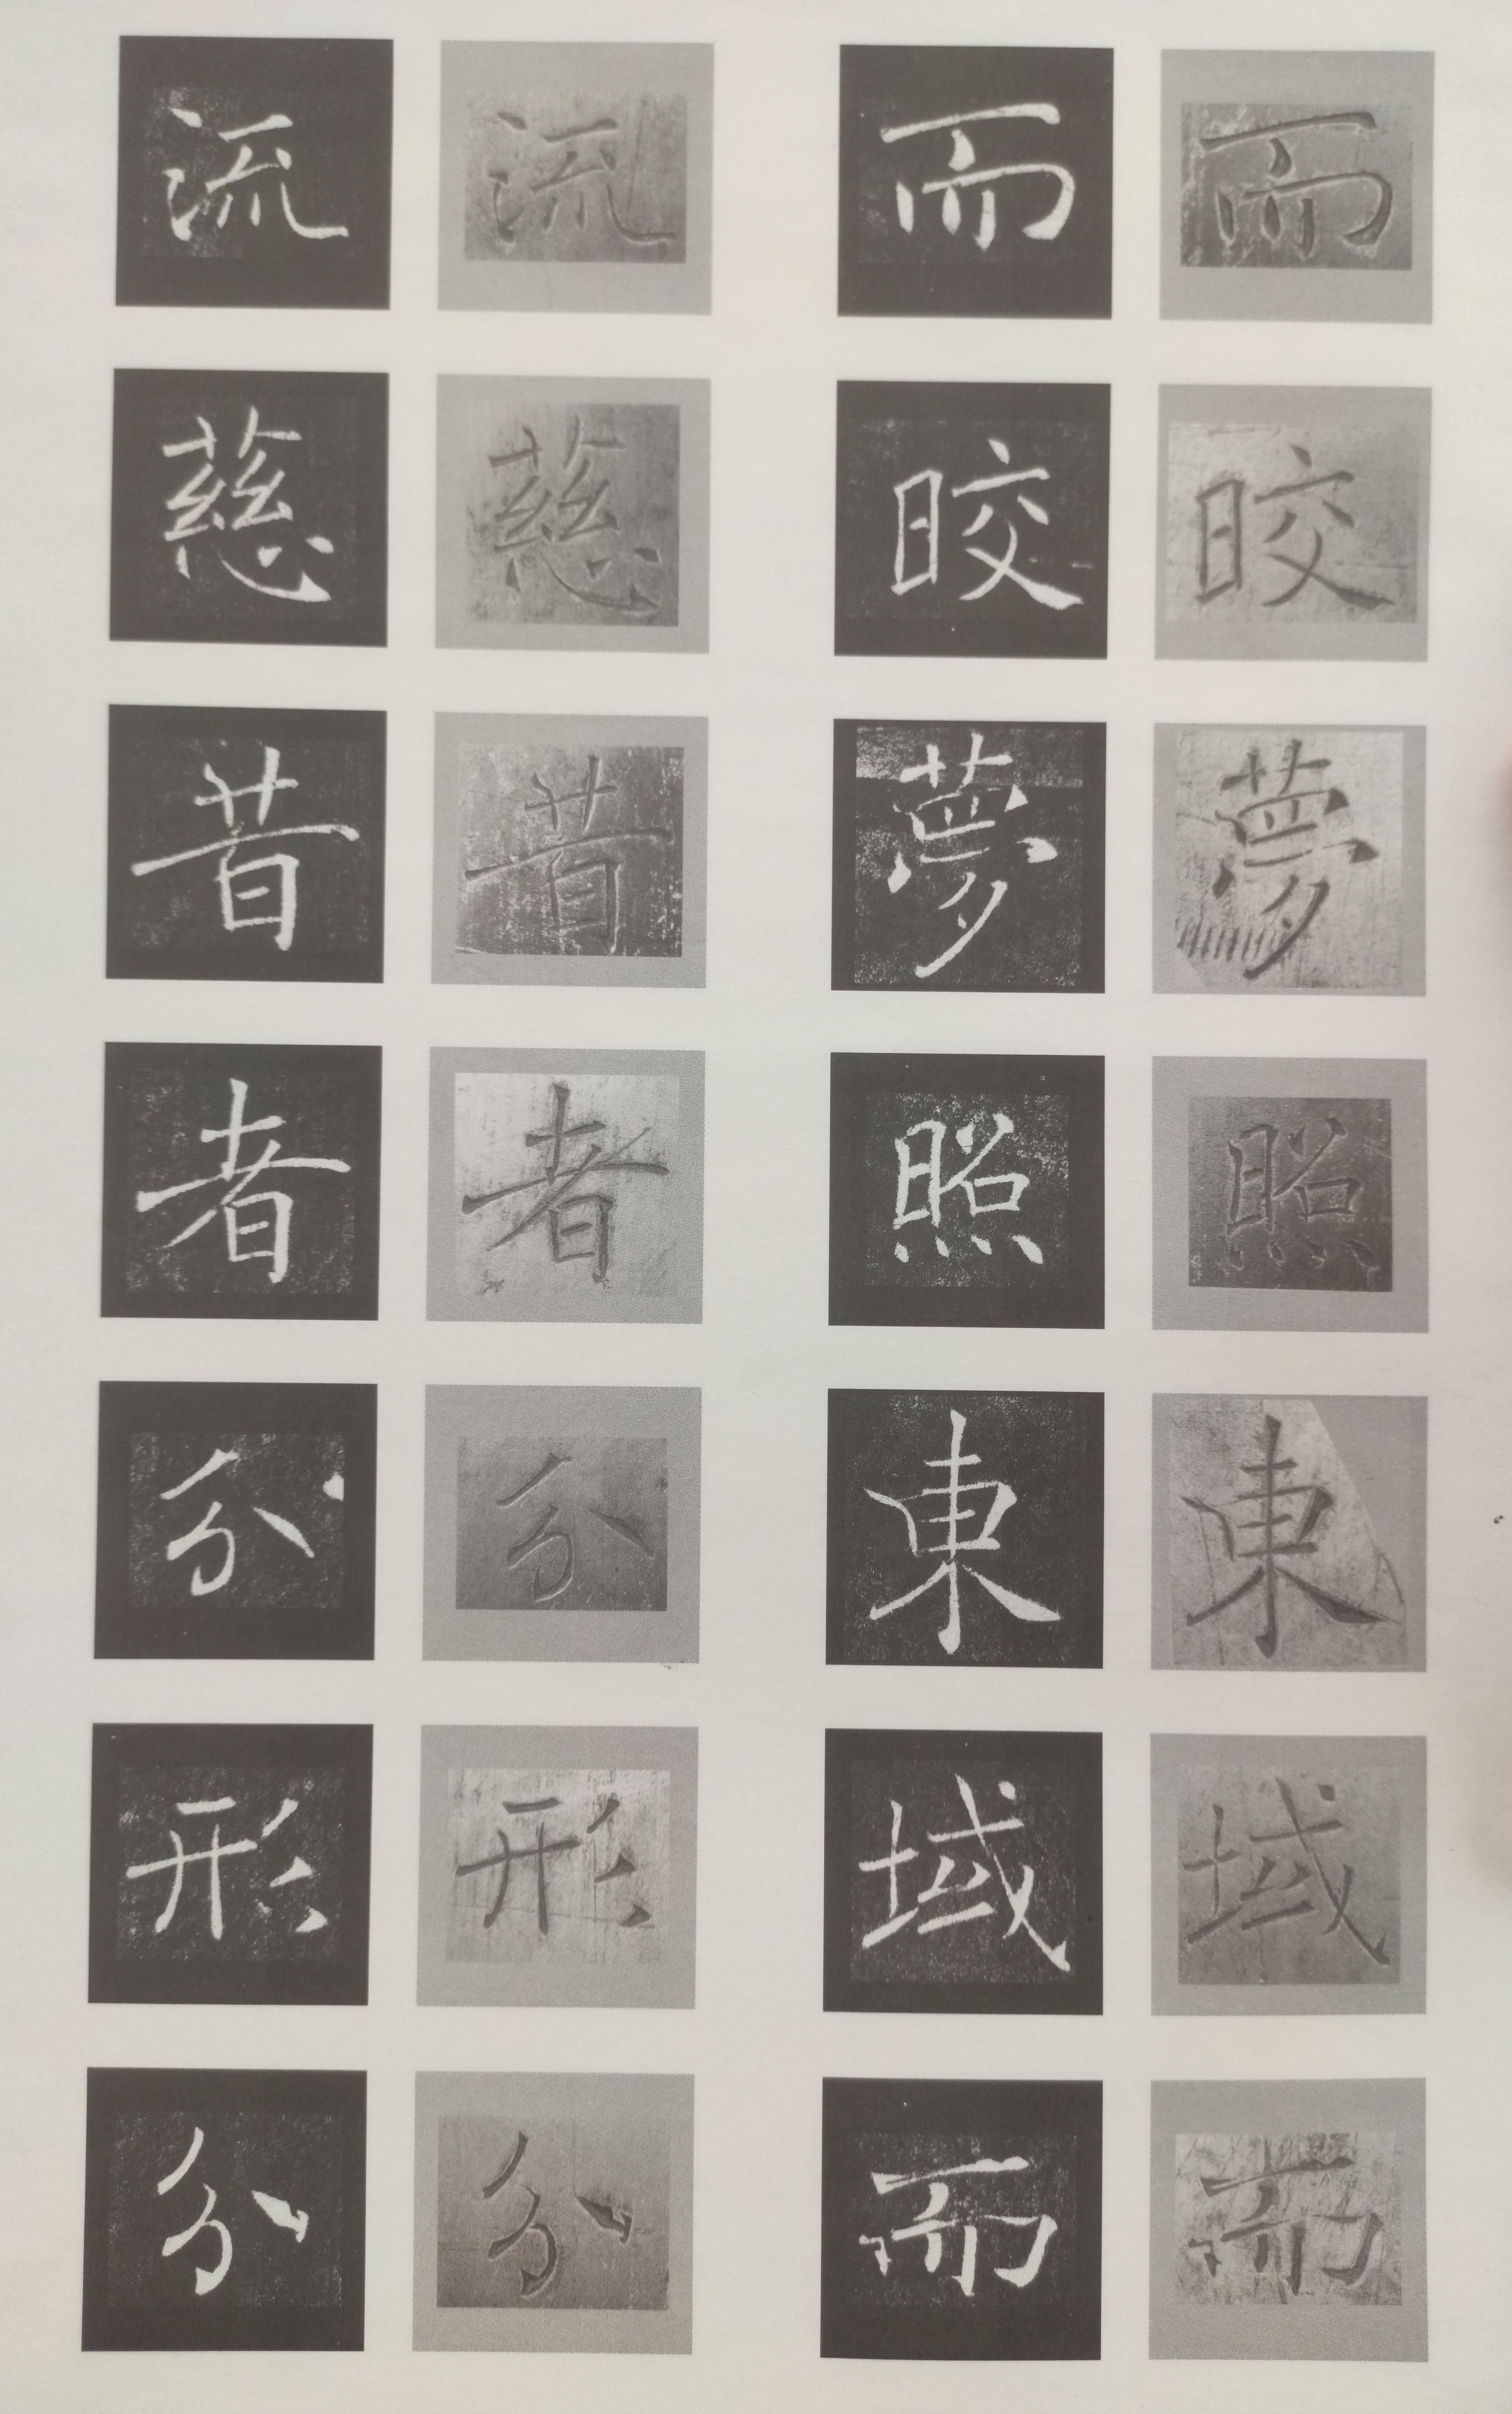 而晈夢照東域而
而晈夢照東域而
流慈昔者分形分
流慈昔者分形分